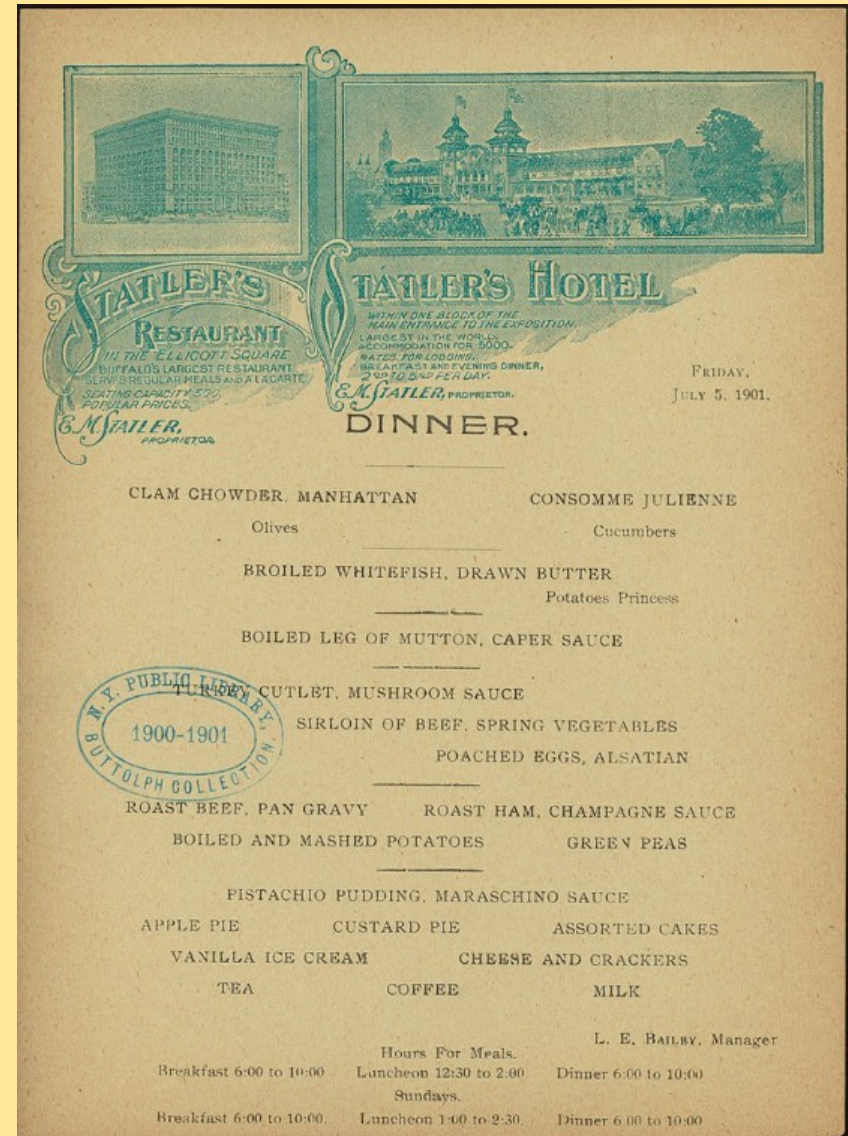 STATLER'S
RESTAURANT
IN THE ELLICOTT SQUARE
BUFFALO'S LARGEST RESTAURANT
SERVES REGULAR MEALS AND A LA CARTE
SEATING CAPACITY 500.
POPULAR PRICES.
E.M. STATLER,
PROPRIETOR
STATLER'S HOTEL
WITHIN ONE BLOCK OF THE
MAIN ENTRANCE TO THE EXPOSITION.
LARGEST IN THE WORLD.
ACCOMMODATION FOR 5000.
RATES, FOR LODGING,
BREAKFAST AND EVENING DINNER,
PER DAY.
E.M. STATLER, PROPRIETOR.
FRIDAY,
JULY 5, 1901.
DINNER.
CLAM CHOWDER, MANHATTAN CONSOMME JULIENNE
Olives Cucumbers
BROILED WHITEFISH, DRAWN BUTTER
Potatoes Princess
BOILED LEG OF MUTTON, CAPER SAUCE
TURKEY CUTLET, MUSHROOM SAUCE
SIRLOIN OF BEEF, SPRING VEGETABLES
POACHED EGGS, ALSATIAN
N.Y. PUBLIC LIBRARY,
1900-1901
BUTTOLPH COLLECTION.
ROAST BEEF, PAN GRAVY ROAST HAM, CHAMPAGNE SAUCE
BOILED AND MASHED POTATOES GREEN PEAS
PISTACHIO PUDDING, MARASCHINO SAUCE
APPLE PIE CUSTARD PIE ASSORTED CAKES
VANILLA ICE CREAM CHEESE AND CRACKERS
TEA COFFEE MILK
L. E. BAILEY, Manager
Hours For Meals.
Breakfast 6:00 to 10:00 Luncheon 12:30 to 2:00 Dinner 6:00 to 10:00
Sundays.
Breakfast 6:00 to 10:00. Luncheon 1:00 to 2:30. Dinner 6:00 to 10:00